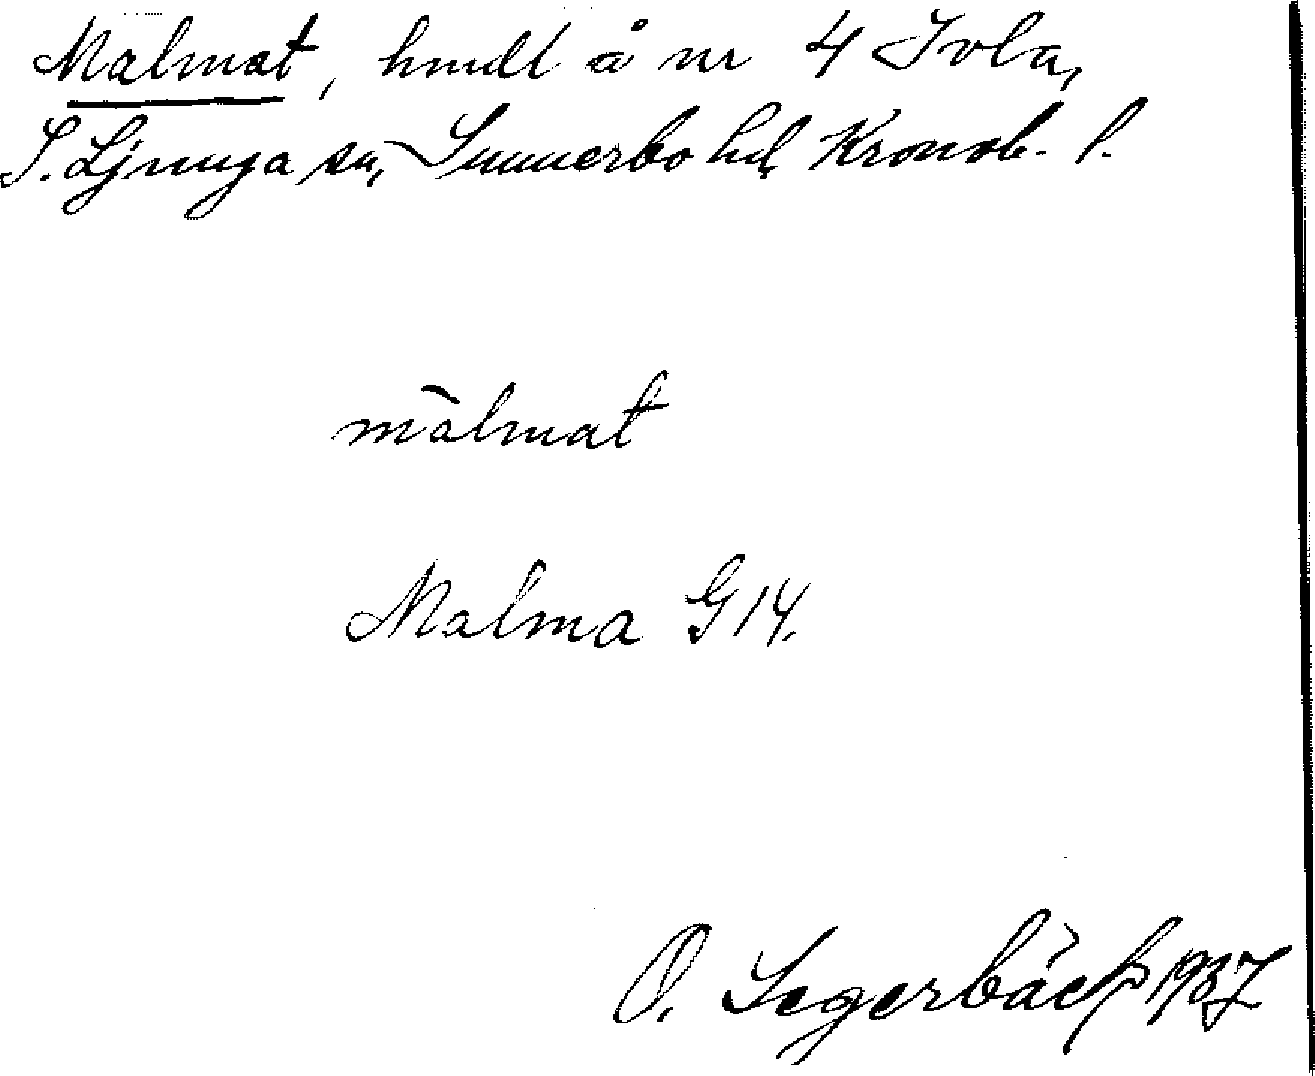 Malmat, hmdl å nr 4 Ivla,
S. Ljunga sn, Sunnerbo hd, Kronob. l.
mālmat
Malma G 14.
O. Segerbäck 1937